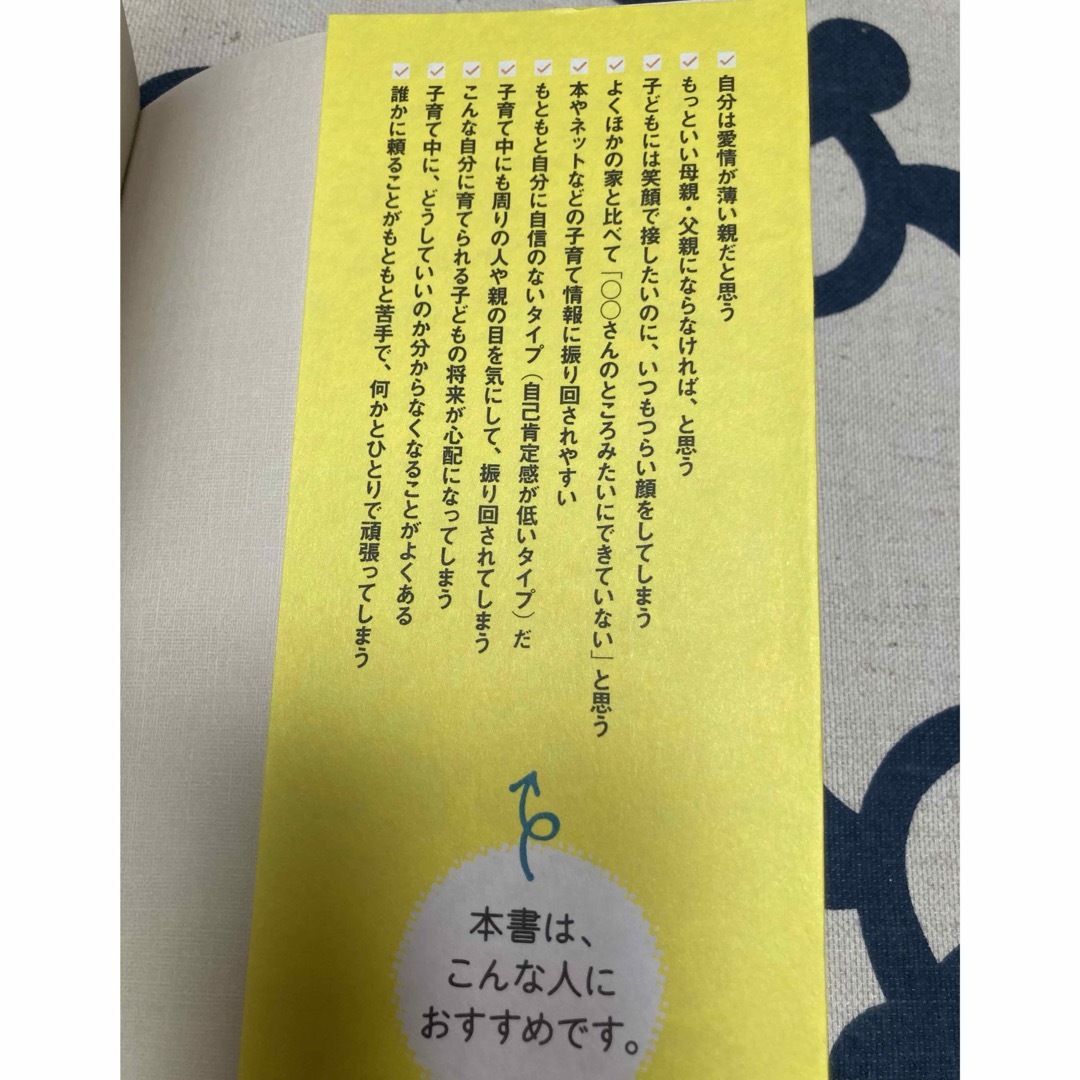 自分は愛情が薄い親だと思う
もっといい母親・父親にならなければ、と思う
子どもには笑顔で接したいのに、いつもつらい顔をしてしまう
よくほかの家と比べて「〇〇さんのところみたいにできていない」と思う
本やネットなどの子育て情報に振り回されやすい
もともと自分に自信のないタイプ（自己肯定感が低いタイプ）だ
子育て中にも周りの人や親の目を気にして、振り回されてしまう
こんな自分に育てられる子どもの将来が心配になってしまう
子育て中に、どうしていいのか分からなくなることがよくある
誰かに頼ることがもともと苦手で、何かとひとりで頑張ってしまう
本書は、
こんな人に
おすすめです。